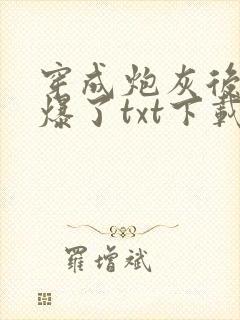 穿成炮灰後
爆了txt下載
羅增斌